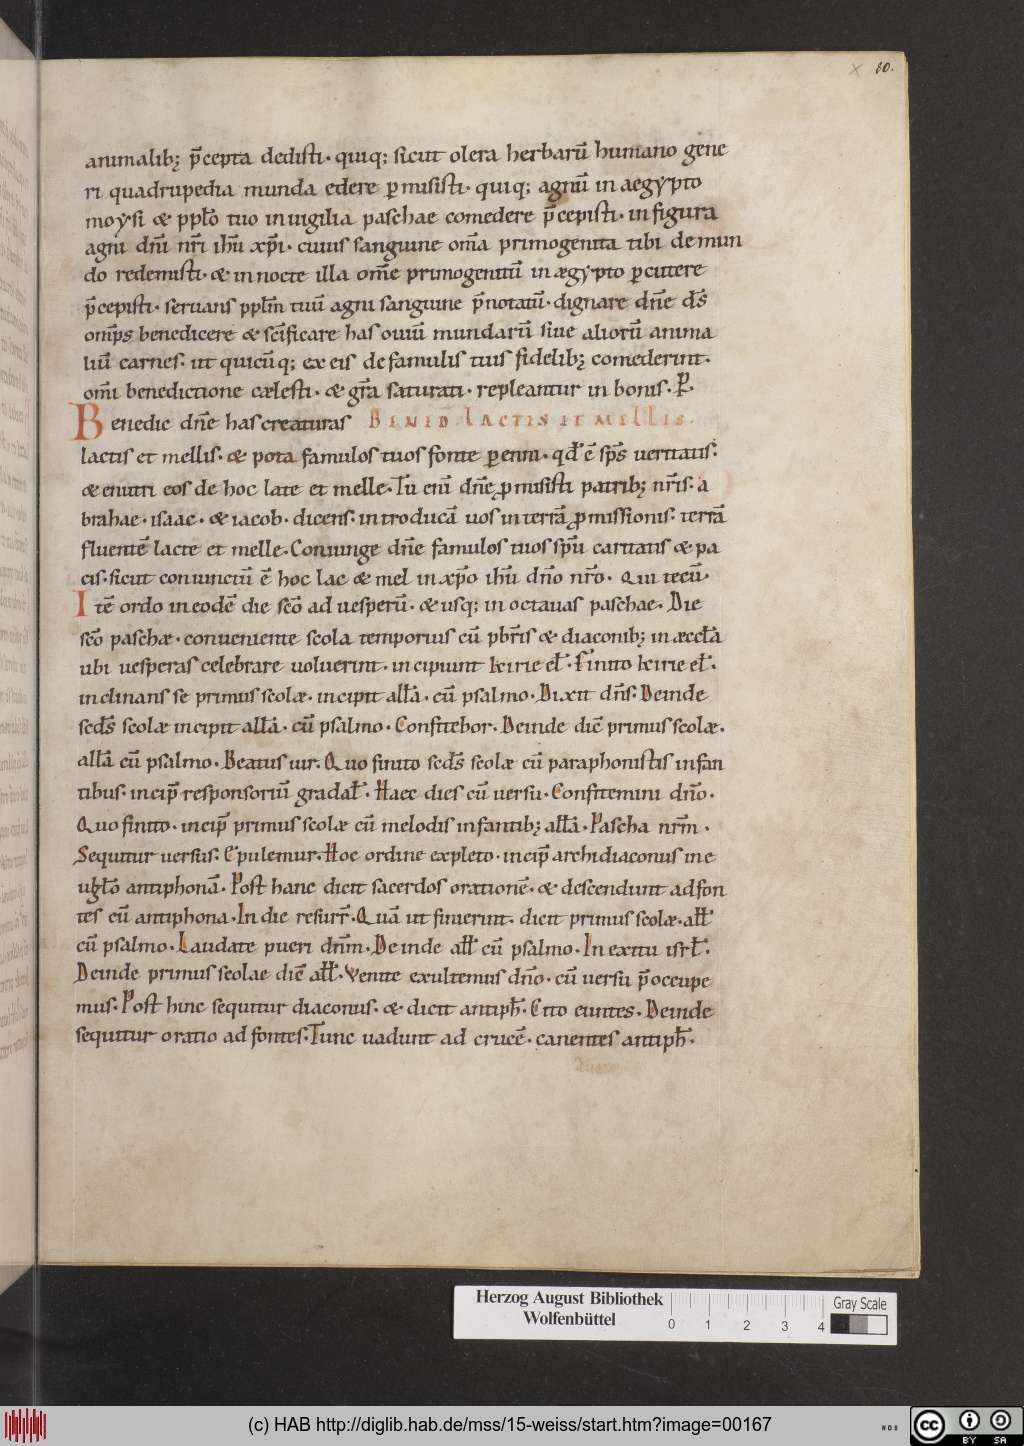 80.
animalib; p̄cepta dedisti· quiq; sicut olera herbarū humano gene
ri quadrupedia munda edere ꝑmisisti· quiq; agnū in aegypto
moysi & pplo tuo in uigilia paschae comedere p̄cepisti· in figura
agni dn̄i nr̄i ihū xp̄i· cuius sanguine om̄a primogenita tibi de mun
do redemisti· & in nocte illa om̄e primogenitū in ægypto ꝑcutere
p̄cepisti· seruans pplm̄ tuū agni sanguine p̄notatū· dignare dn̄e ds̄
omp̄s benedicere & sc̄ificare has ouiū mundarū siue aliorū anima
liū carnes· ut quicūq; ex eis de famulis tuis fidelib; comederint·
om̄i benedictione cælesti· & gr̄a saturati· repleantur in bonis· P·
Benedic dn̄e has creaturas BENED. LACTIS ET MELLIS.
lactis et mellis· & pota famulos tuos fonte ꝑenni· qd̄ ē sps̄ ueritatis·
& enutri eos de hoc late et melle· Tu enī dn̄e ꝓmisisti patrib; nr̄is· a
brahae· isaac· & iacob· dicens· introducā uos in terrā ꝓmissionis· terrā
fluentē lacte et melle· Coniunge dn̄e famulos tuos spū caritatis & pa
cis· sicut coniunctū ē hoc lac & mel in xp̄o ihū dn̄o nr̄o· Qui tecū·
Itē ordo in eodē die sc̄o ad uesperū· & usq; in octauas paschae· Die
sc̄o paschæ· conueniente scola temporius cū pbr̄is & diaconib; in æccłā
ubi uesperas celebrare uoluerint· incipiunt kirie eł· Finito kirie eł·
inclinans se primus scolæ· incipit allā· cū psalmo· Dixit dn̄s· Deinde
scds̄ scolæ incipit allā· cū psalmo· Confitebor· Deinde diē primus scolæ·
allā cū psalmo· Beatus uir· Quo finito scds̄ scolæ cū paraphonistis infan
tibus· incip̄ responsoriū gradał· Haec dies cū uersu· Confitemini dn̄o·
Quo finito· incip̄ primus scolæ cū melodis infantib; allā· Pascha nrm̄·
Sequitur uersus· Epulemur· Hoc ordine expleto· incip̄ archidiaconus in e
uḡło antiphonā· Post hanc dicit sacerdos orationē· & descendunt ad fon
tes cū antiphona· In die resurr̄· Quā ut finierint· dicit primus scolæ· ałł
cū psalmo· Laudate pueri dnm̄· Deinde ałł cū psalmo· In exitu isrł·
Deinde primus scolae diē ałł· Venite exultemus dn̄o· cū uersu p̄occupe
mus· Post hinc sequitur diaconus· & dicit antiph̄· Cito euntes· Deinde
sequitur oratio ad fontes· Tunc uadunt ad crucē· canentes antiph̄·
Herzog August Bibliothek
Wolfenbüttel
0 1 2 3 4
Gray Scale
(c) HAB http://diglib.hab.de/mss/15-weiss/start.htm?image=00167
WDB
cc BY SA